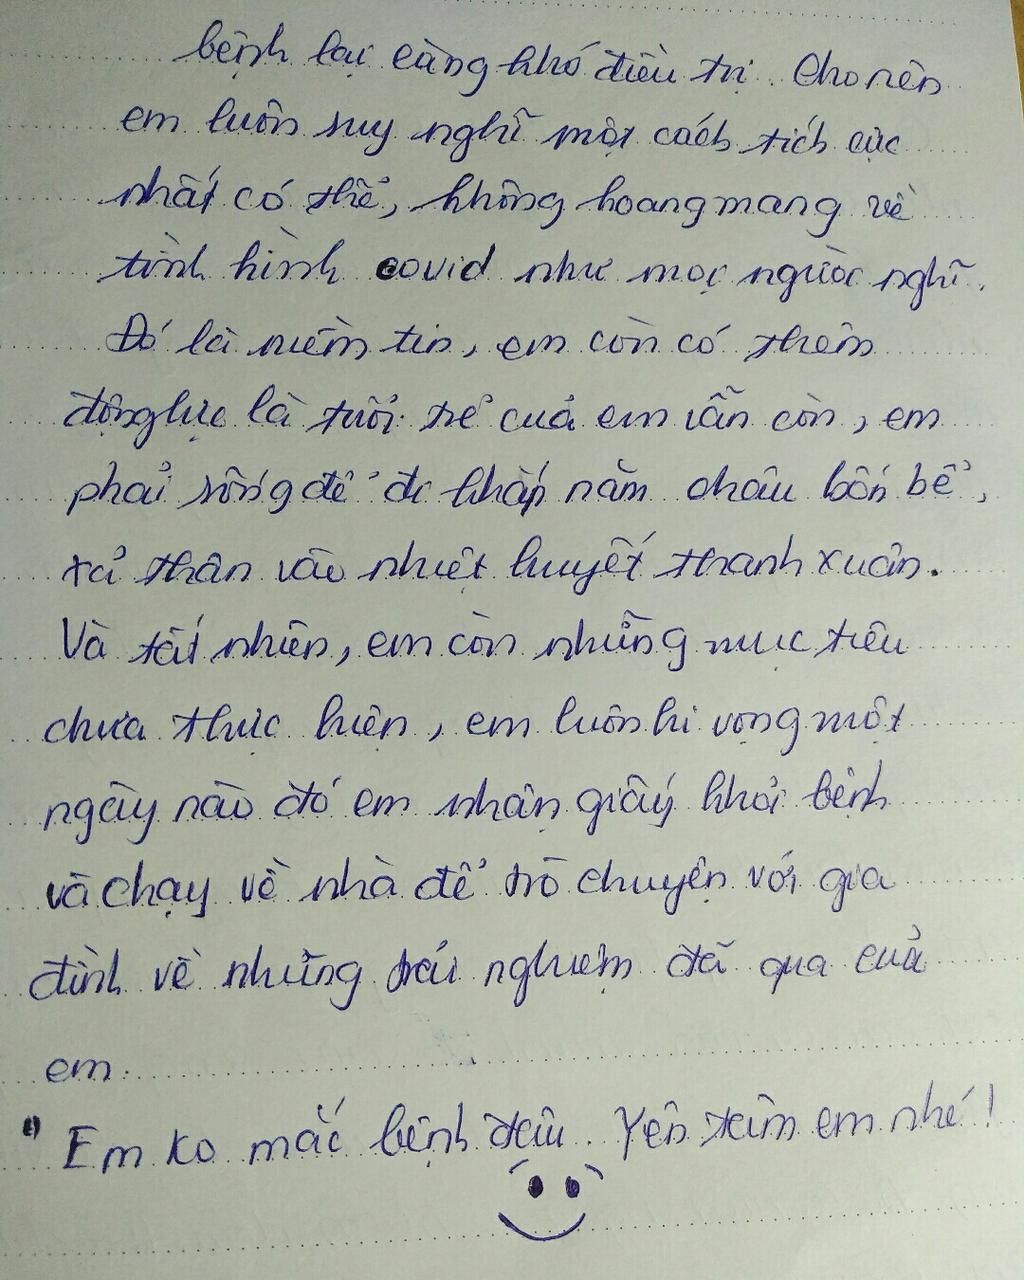 bệnh lại càng khó điều trị. Cho nên
em luôn suy nghĩ một cách tích cực
nhất có thể, không hoang mang về
tình hình covid như mọi người nghĩ.
Đó là niềm tin, em còn có thêm
động lực là tuổi trẻ của em vẫn còn, em
phải sống để đi khắp năm châu bốn bể,
xả thân vào nhiệt huyết thanh xuân.
Và tất nhiên, em còn những mục tiêu
chưa thực hiện, em luôn hi vọng một
ngày nào đó em nhận giấy khỏi bệnh
và chạy về nhà để trò chuyện với gia
đình về những trải nghiệm đã qua của
em.
Em ko mắc bệnh đâu. Yên tâm em nhé!